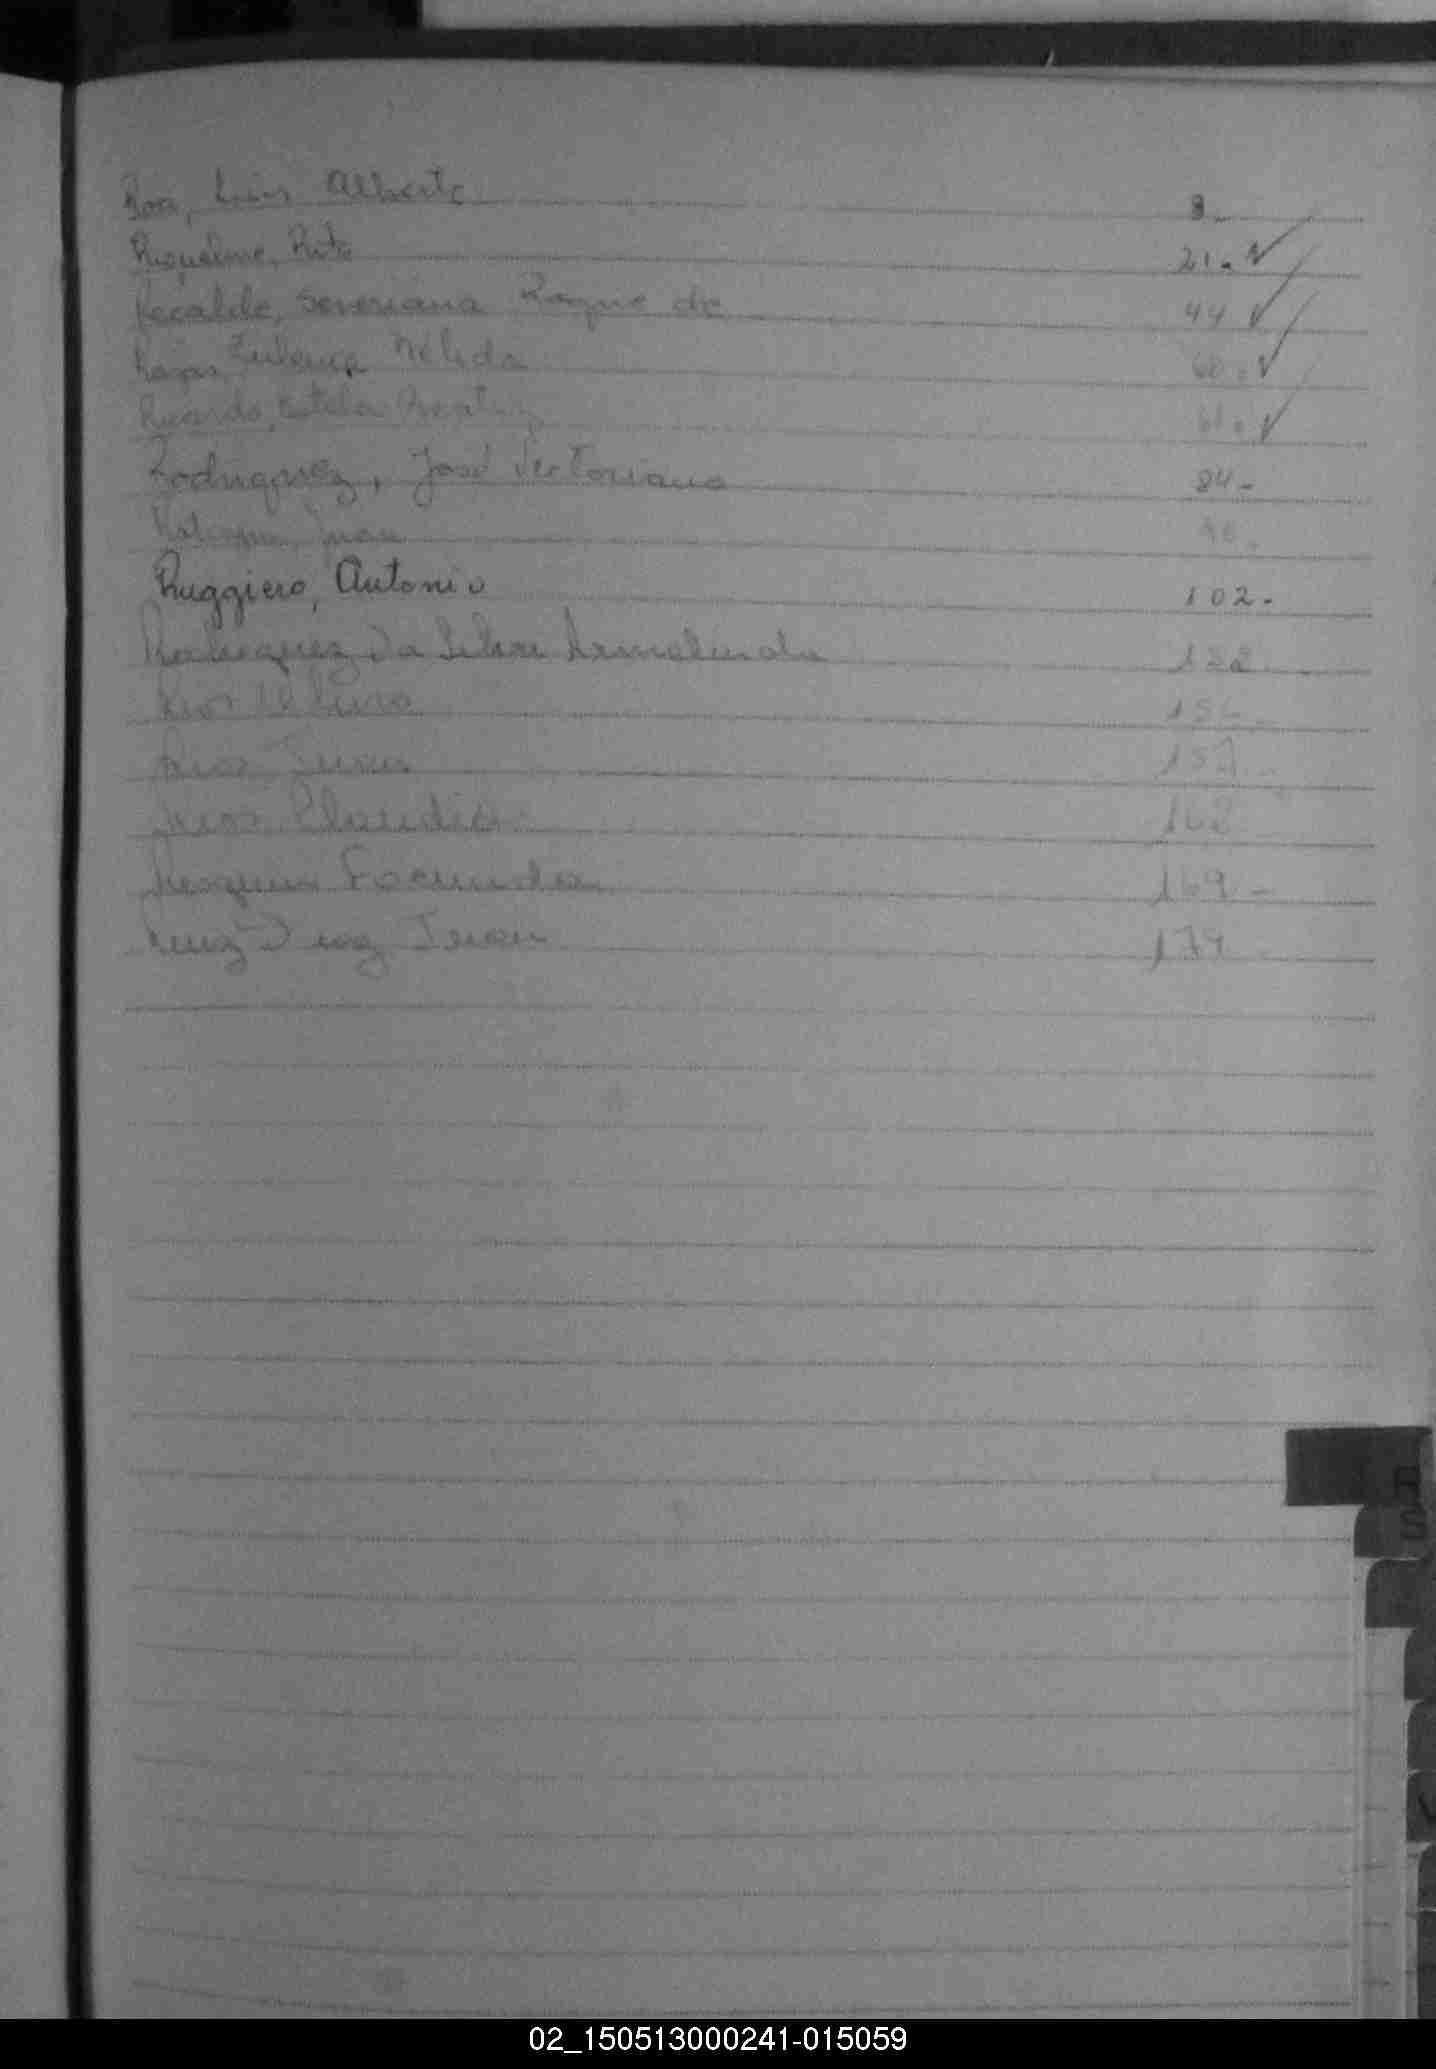 Roa, Luis Alberto 3.
Riquelme, Rito 21. ✓
Recalde, Severiana Roque de 44 ✓
Rojas Zulema Nélida 60. ✓
Ricardo, Estela Beatriz 61. ✓
Rodriguez, José Victoriano 84-
Juan 90.
Ruggiero, Antonio 102.
Rodriguez Da Silva 132
Rios Arturo 156
Rios Juan 157
Rios Claudia 162
Facunda 169-
Ruiz Diaz Juan 174
R
S
V
02_150513000241-015059